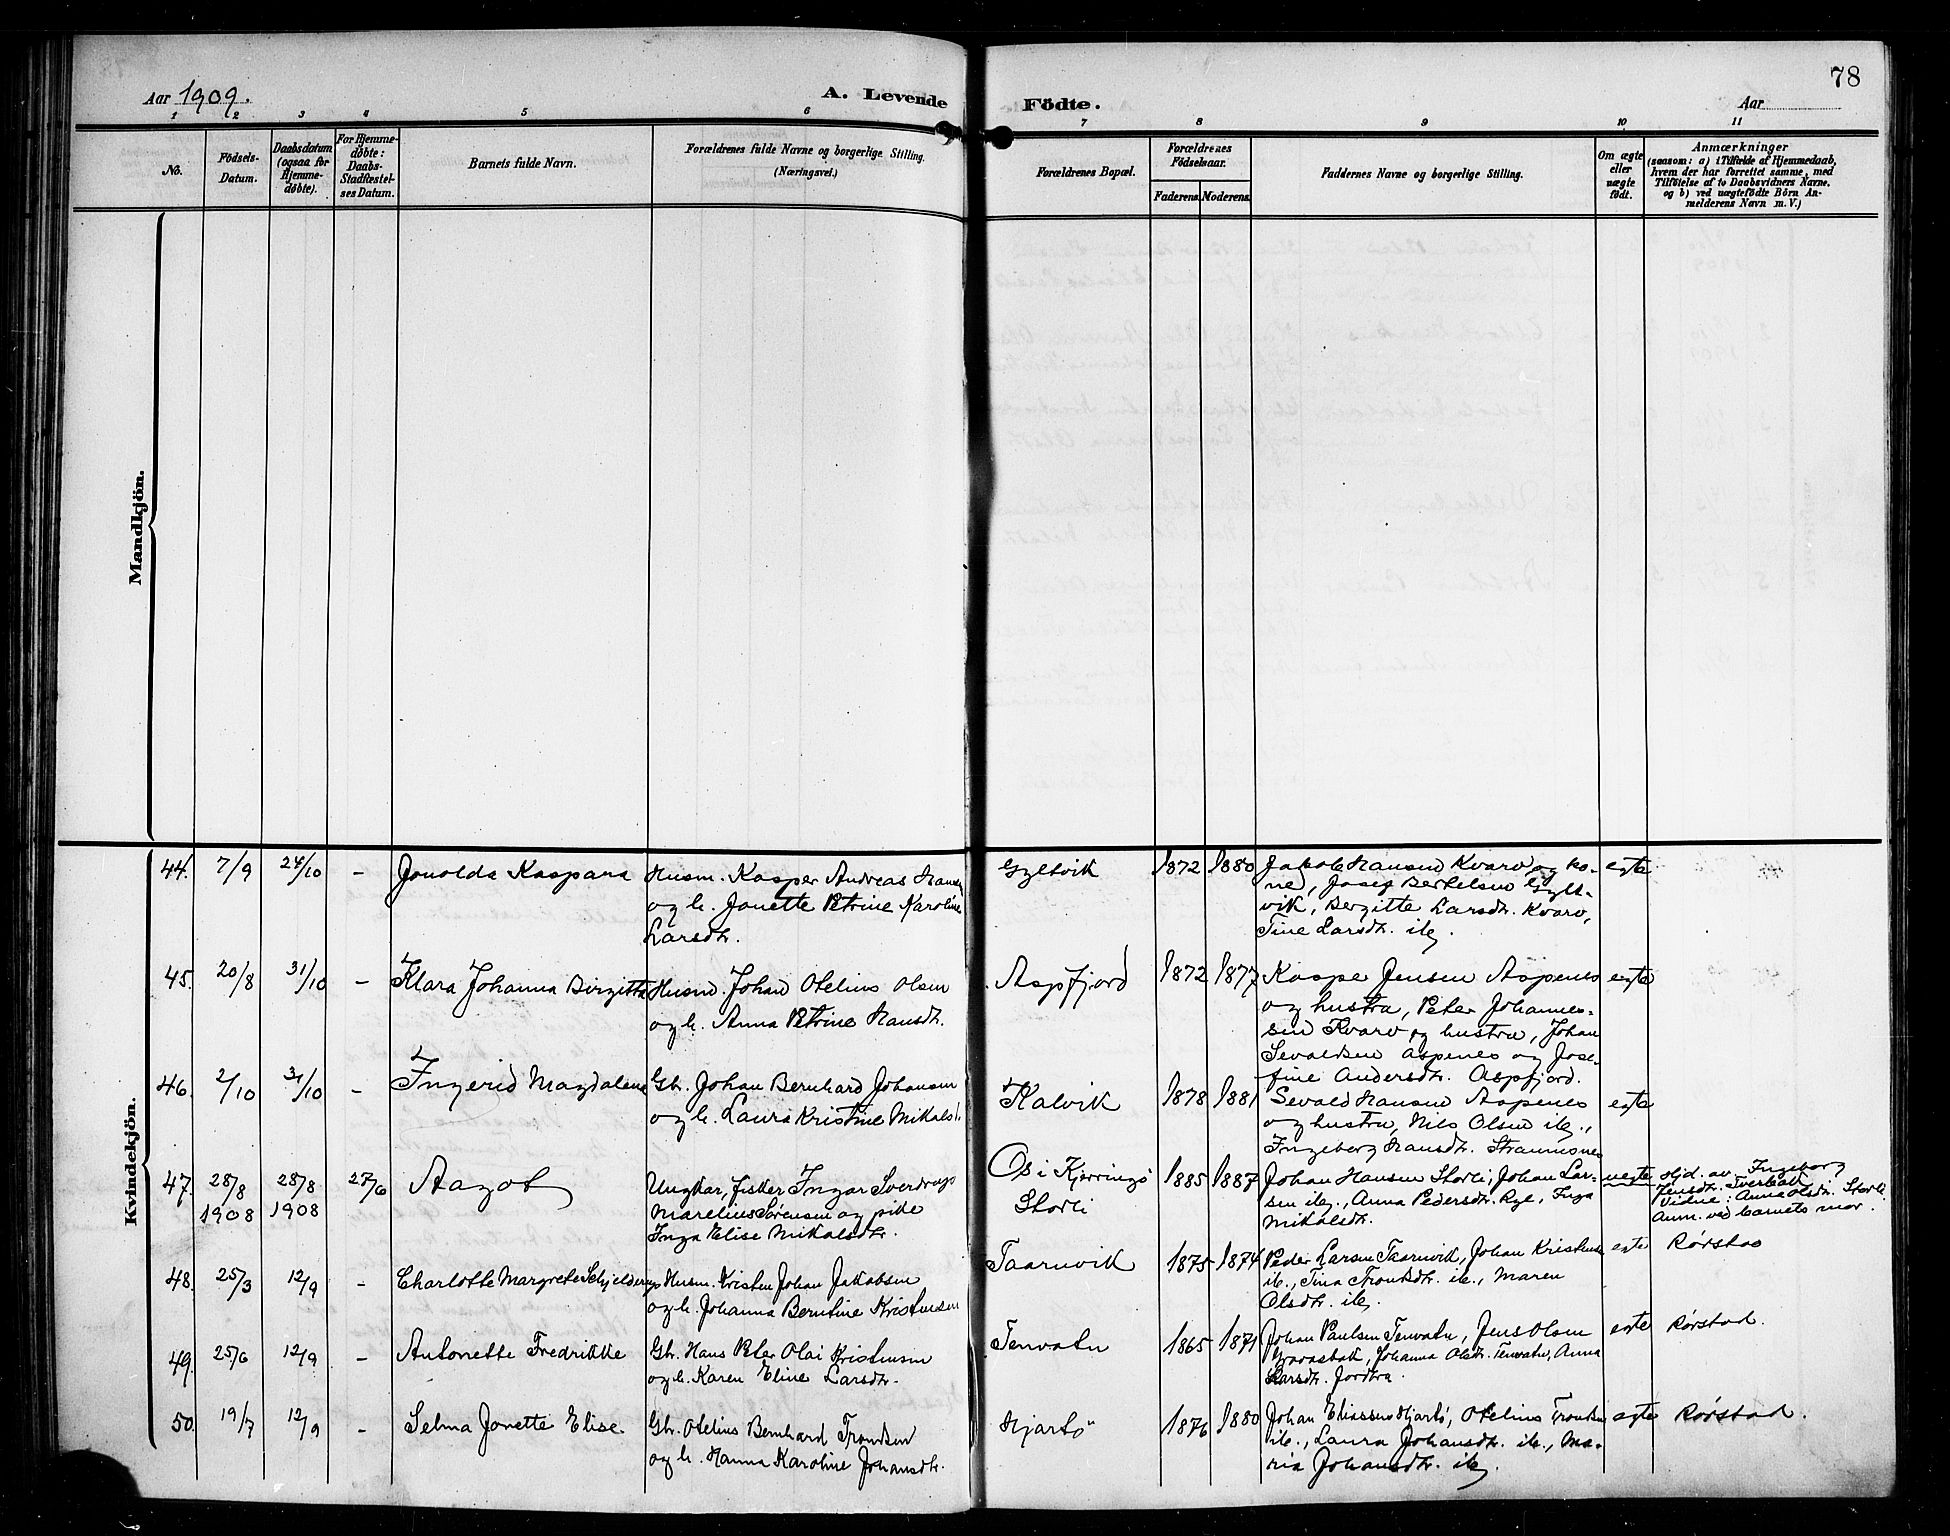 78
Aar 1909. A. Levende Födte. Aar
1 2 3 4 5 6 7 8 9 10 11
No.
Födsels-
Datum.
Daabsdatum
(ogsaa for
Hjemme-
døbte).
For Hjemme-
døbte:
Daabs-
Stadfæstel-
ses Datum.
Barnets fulde Navn.
Forældrenes fulde Navne og borgerlige Stilling.
(Næringsvei.)
Forældrenes Bopæl.
Forældrenes
Fødselsaar.
Faderens. Moderens.
Faddernes Navne og borgerlige Stilling.
Om ægte
eller
uægte
født.
Anmærkninger
(saasom: a) i Tilfælde af Hjemmedaab,
hvem der har forrettet samme, med
Tilføielse af to Daabsvidners Navne,
og b) ved uægtefødte Börn An-
melderens Navn m. V.)
Mandkjön.
Kvindekjön.
44. 7/9 24/10 - Jonolda Kaspara
Husm. Kasper Andreas Hansen
og h. Jonette Petrine Karoline
Larsdtr.
Gyltvik 1872 1880
Jakob Hansen Kvarv og ko-
ne, Josef Bertelsen Gylt-
vik, Bergitte Larsdtr. Kvarv,
Tine Larsdtr. ib.
egte
45. 20/8 31/10 - Klara Johanna Birgitta
Husm. Johan Otelius Olsen
og h. Anna Petrine Hansdtr.
Aspfjord 1872 1877
Kasper Jensen Aspenes
og hustru, Peter Johannes-
sen Kvarv og hustru, Johan
Sevaldsen Aspenes og Jose-
fine Andersdtr. Aspfjord.
egte
46. 2/10 31/10 - Ingerid Magdalena
Gbr. Johan Bernhard Johansen
og h. Laura Kristine Mikalsd.
Kalvik 1878 1881
Sevald Hansen Aspenes
og hustru, Nils Olsen ib.,
Ingeborg Hansdtr. Straumsnes
egte
47. 28/8 1908 28/8 1908 27/6 Aagot
Ungkar, fisker Ingar Sverdrup
Marelius Sørensen og pike
Inga Elise Mikalsdtr.
Os i Kjerringø
Storli
1885 1887
Johan Hansen Storli, Johan Lar-
sen ib., Anna Pedersdtr. Rye, Inga
Mikalsdtr.
uegte
Hjd. av Ingeborg
Jensdtr. Tverbak
Vidne: Anna Olsdtr. Storli.
Anm. ved barnets mor.
48. 25/3 12/9 - Charlotte Margrete Schjelderup
Husm. Kristen Johan Jakobsen
og h. Johanna Berntine Kristensen
Taarnvik 1875 1874
Peder Larsen Taarnvik, Johan Kristensen
ib., Tina Trondsdtr. ib., Maren
Olsdtr. ib.
egte Rørstad
49. 25/6 12/9 - Antonette Fredrikke
Gbr. Hans Peter Olai Kristensen
og h. Karen Eline Larsdtr.
Tenvatn 1865 1871
Johan Paulsen Tenvatn, Jens Olsen
Johanna Olsdtr. Tenvatn, Anna
Larsdtr.
egte Rørstad.
50. 19/7 12/9 - Selma Jonette Elise.
Gbr. Otelius Bernhard Trondsen
og h. Hanna Karoline Johansdtr.
Hjartö 1876 1880
Johan Eliassen Hjartö, Otelius Trondsen
ib., Laura Johansdtr. ib., Ma-
ria Johansdtr. ib.
egte Rørstad.